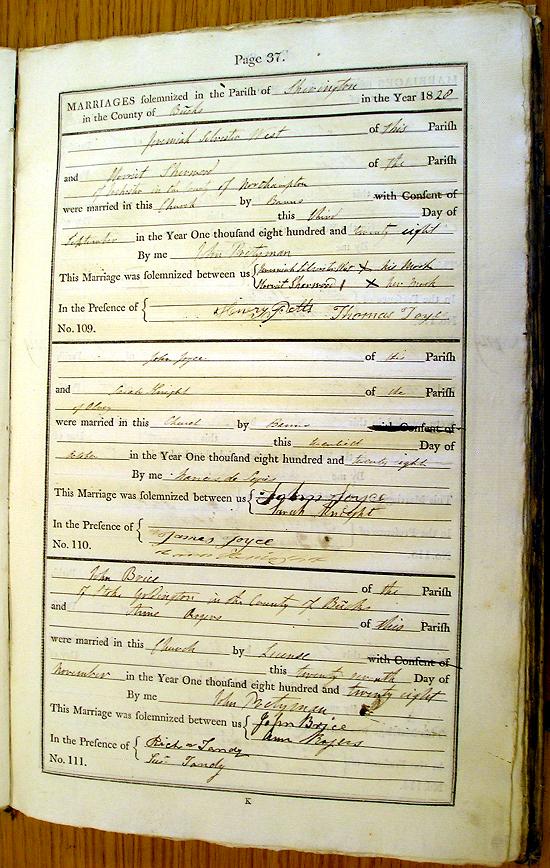 Page 37.
MARRIAGES solemnized in the Parish of Sherington
in the County of Bucks in the Year 1828
Jeremiah Silvester West of this Parish
and Harriet Sherwood of the Parish
of in the of Northampton
were married in this Church by Banns with Consent of
this third Day of
September in the Year One thousand eight hundred and twenty eight
By me John Pretyman
This Marriage was solemnized between us Jeremiah Silvester West X his Mark
Harriet Sherwood X her Mark
In the Presence of Henry Thomas Joyce
No. 109.
John Joyce of this Parish
and Sarah Knight of the Parish
of Olney
were married in this Church by Banns with Consent of
this Day of
October in the Year One thousand eight hundred and twenty eight
By me
This Marriage was solemnized between us John Joyce
Sarah Knight
In the Presence of James Joyce
No. 110.
John Brice of the Parish
of Stoke Goldington in the County of Bucks
and Anne Rogers of this Parish
were married in this Church by License with Consent of
this twenty Day of
November in the Year One thousand eight hundred and twenty eight
By me John Pretyman
This Marriage was solemnized between us John Brice
Ann Rogers
In the Presence of Richd Tandy
Tandy
No. 111.
K